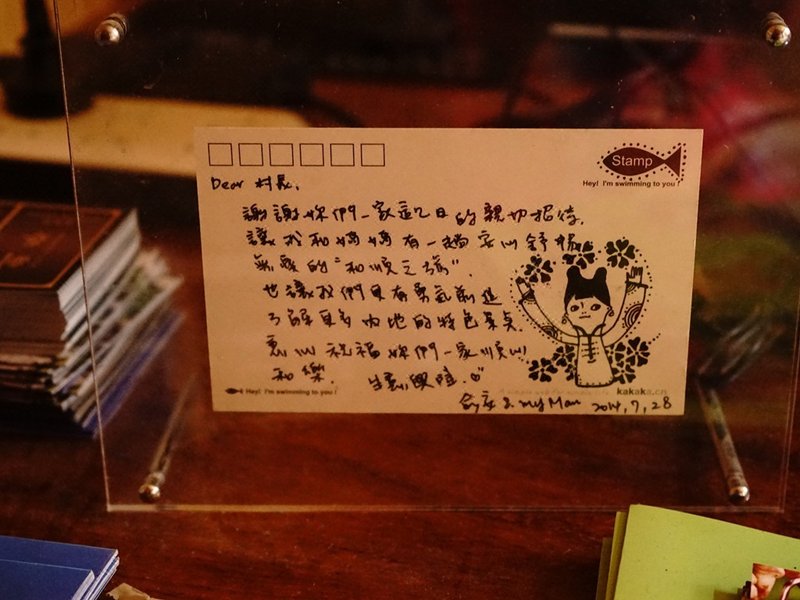 Stamp
Hey! I'm swimming to you!
Dear 村長,
謝謝妳們一家這2日的親切招待.
讓我和媽媽有一趟安心舒暢
無憂的"和順之旅".
也讓我們更有勇氣前進
了解更多內地的特色景点.
衷心祝福妳們一家順心
和樂. 生意興隆.
Hey! I'm swimming to you!
kakaka.cn
& my Mom 2014,7,28